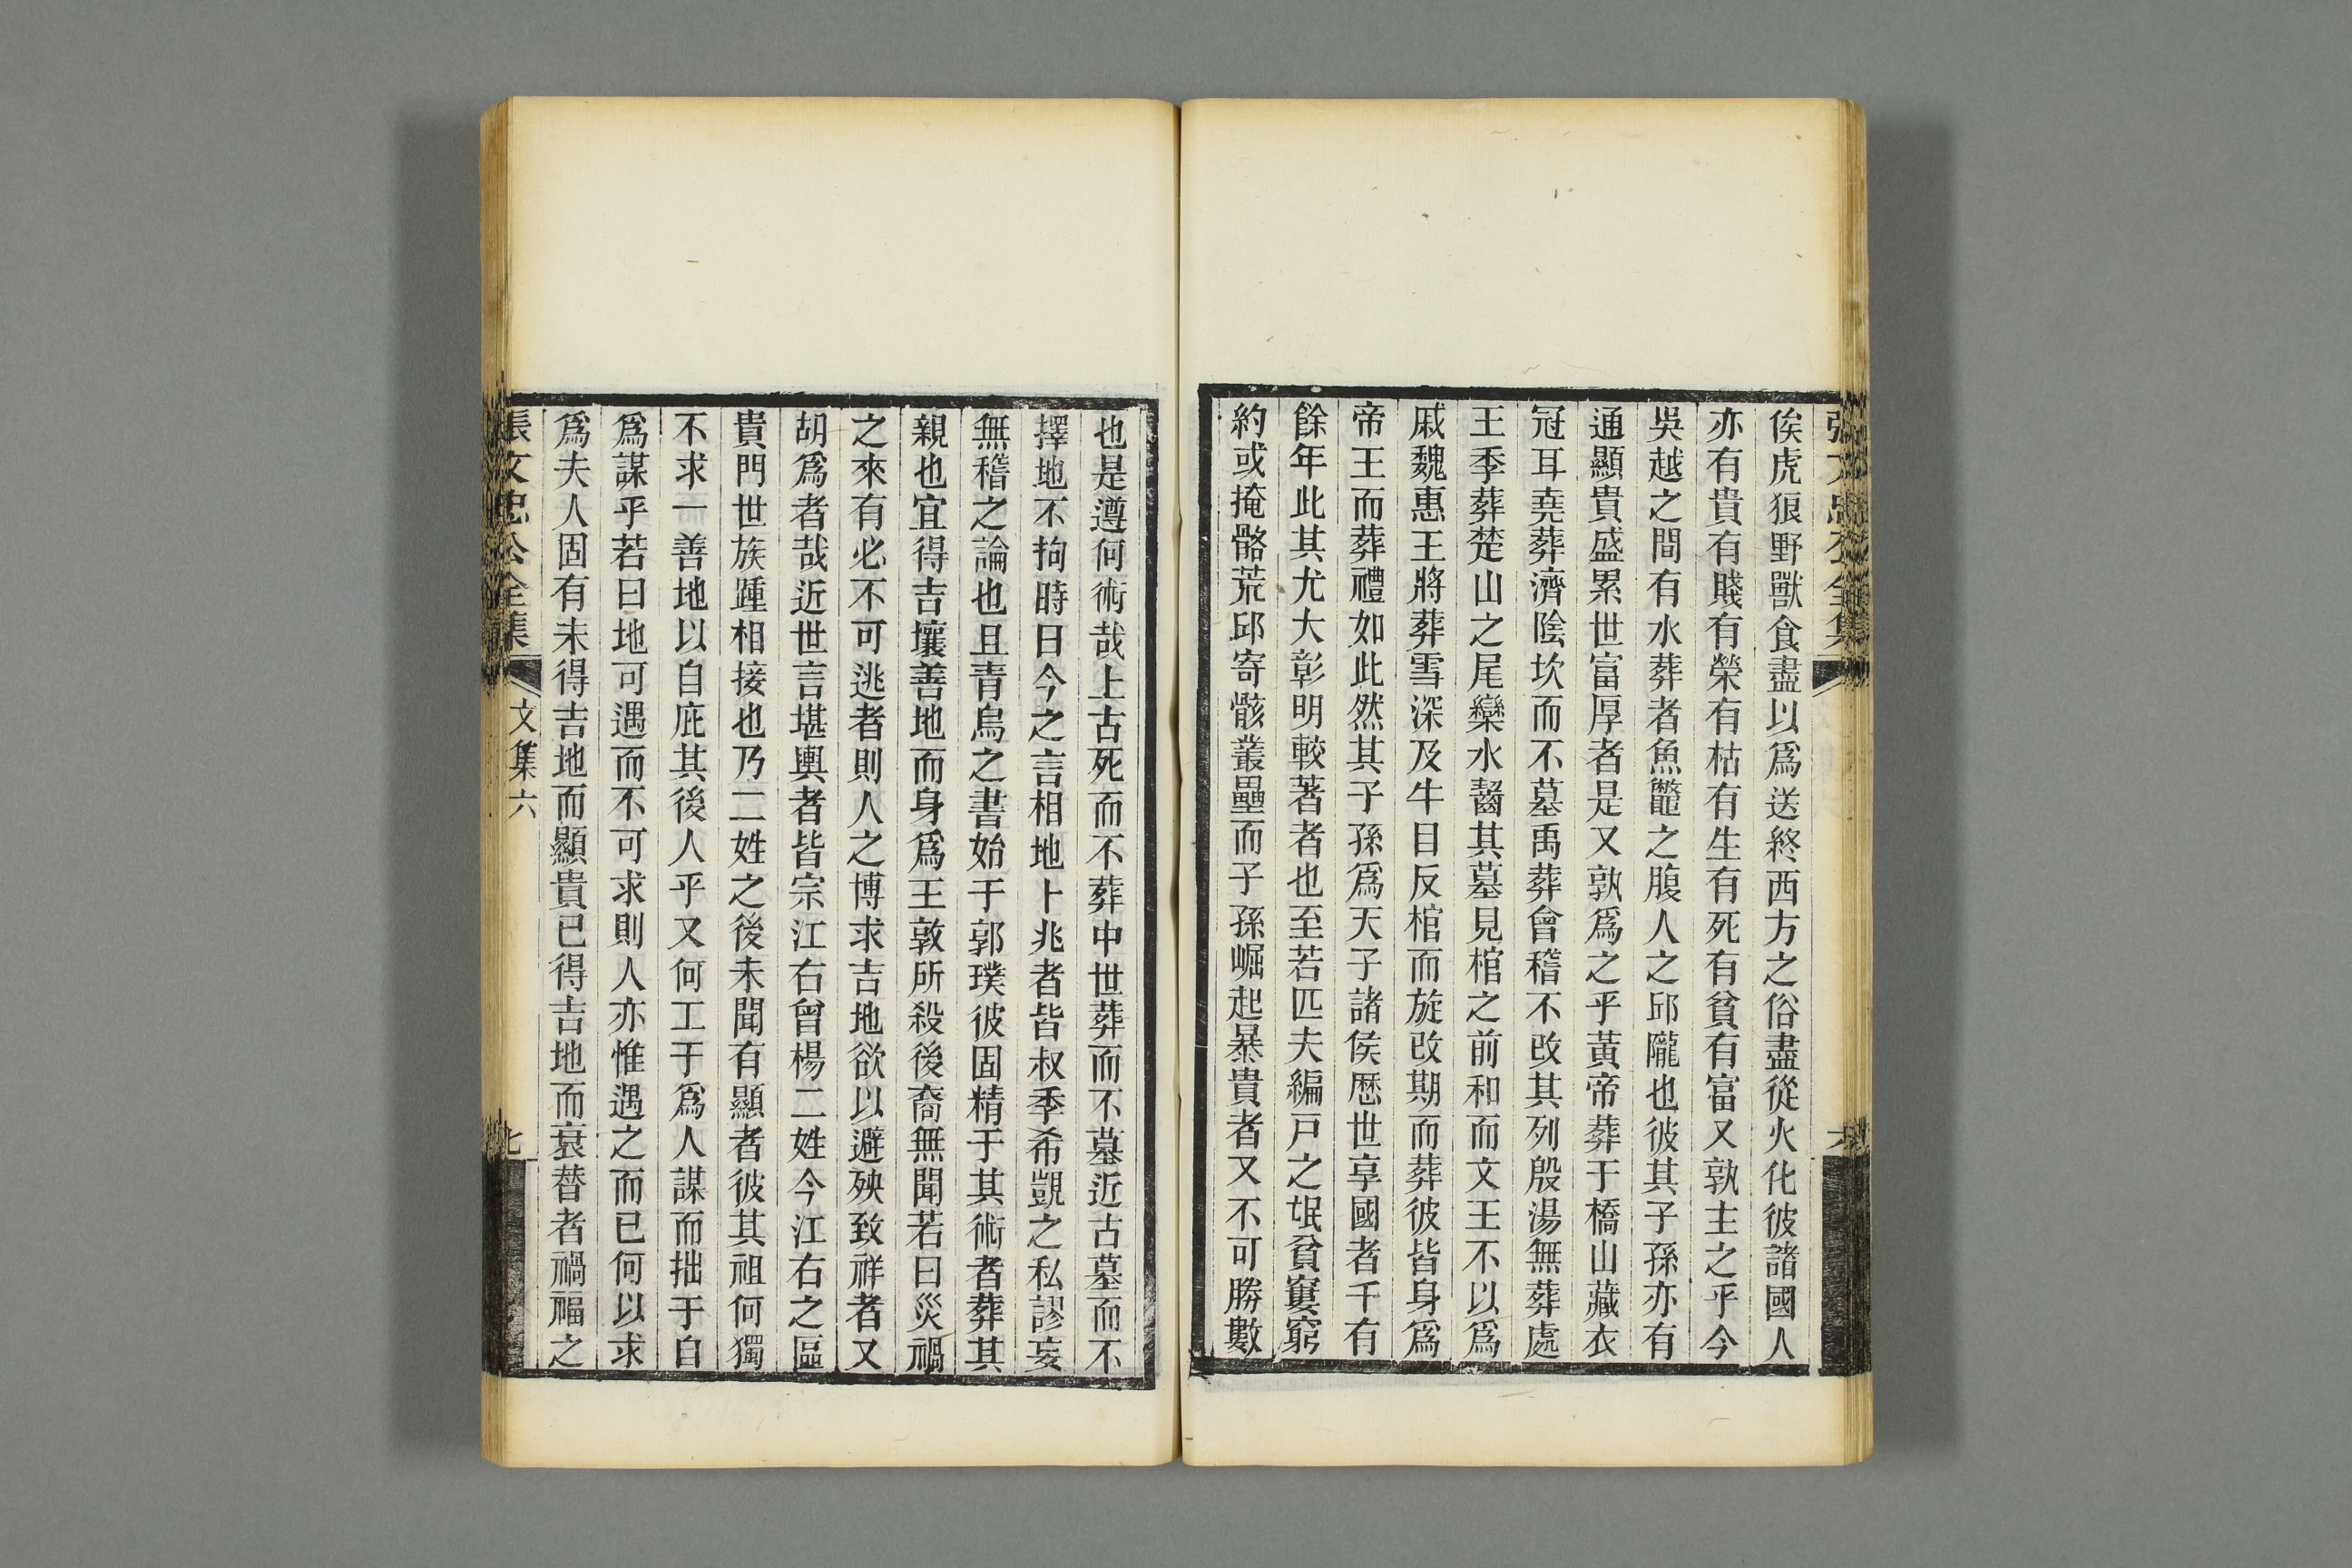 俟虎狼野獸食盡以爲送終西方之俗盡從火化彼諸國人
亦有貴有賤有榮有枯有生有死有貧有富又孰主之乎今
吳越之間有水葬者魚鼈之腹人之邱隴也彼其子孫亦有
通顯貴盛累世富厚者是又孰爲之乎黃帝葬于橋山藏衣
冠耳堯葬濟陰坎而不墓禹葬會稽不改其列殷湯無葬處
王季葬楚山之尾欒水齧其墓見棺之前和而文王不以爲
戚魏惠王將葬雪深及牛目反棺而旋改期而葬彼皆身爲
帝王而葬禮如此然其子孫爲天子諸侯歷世享國者千有
餘年此其尤大彰明較著者也至若匹夫編戸之氓貧窶窮
約或掩骼荒邱寄骸叢壘而子孫崛起暴貴者又不可勝數
也是遵何術哉上古死而不葬中世葬而不墓近古墓而不
擇地不拘時日今之言相地卜兆者皆叔季希覬之私謬妄
無稽之論也且青烏之書始于郭璞彼固精于其術者葬其
親也宜得吉壤善地而身爲王敦所殺後裔無聞若曰災禍
之來有必不可逃者則人之博求吉地欲以避殃致祥者又
胡爲者哉近世言堪輿者皆宗江右曾楊二姓今江右之區
貴門世族踵相接也乃二姓之後未聞有顯者彼其祖何獨
不求一善地以自庇其後人乎又何工于爲人謀而拙于自
爲謀乎若曰地可遇而不可求則人亦惟遇之而已何以求
爲夫人固有未得吉地而顯貴已得吉地而衰替者禍福之
張文忠公全集
文集六